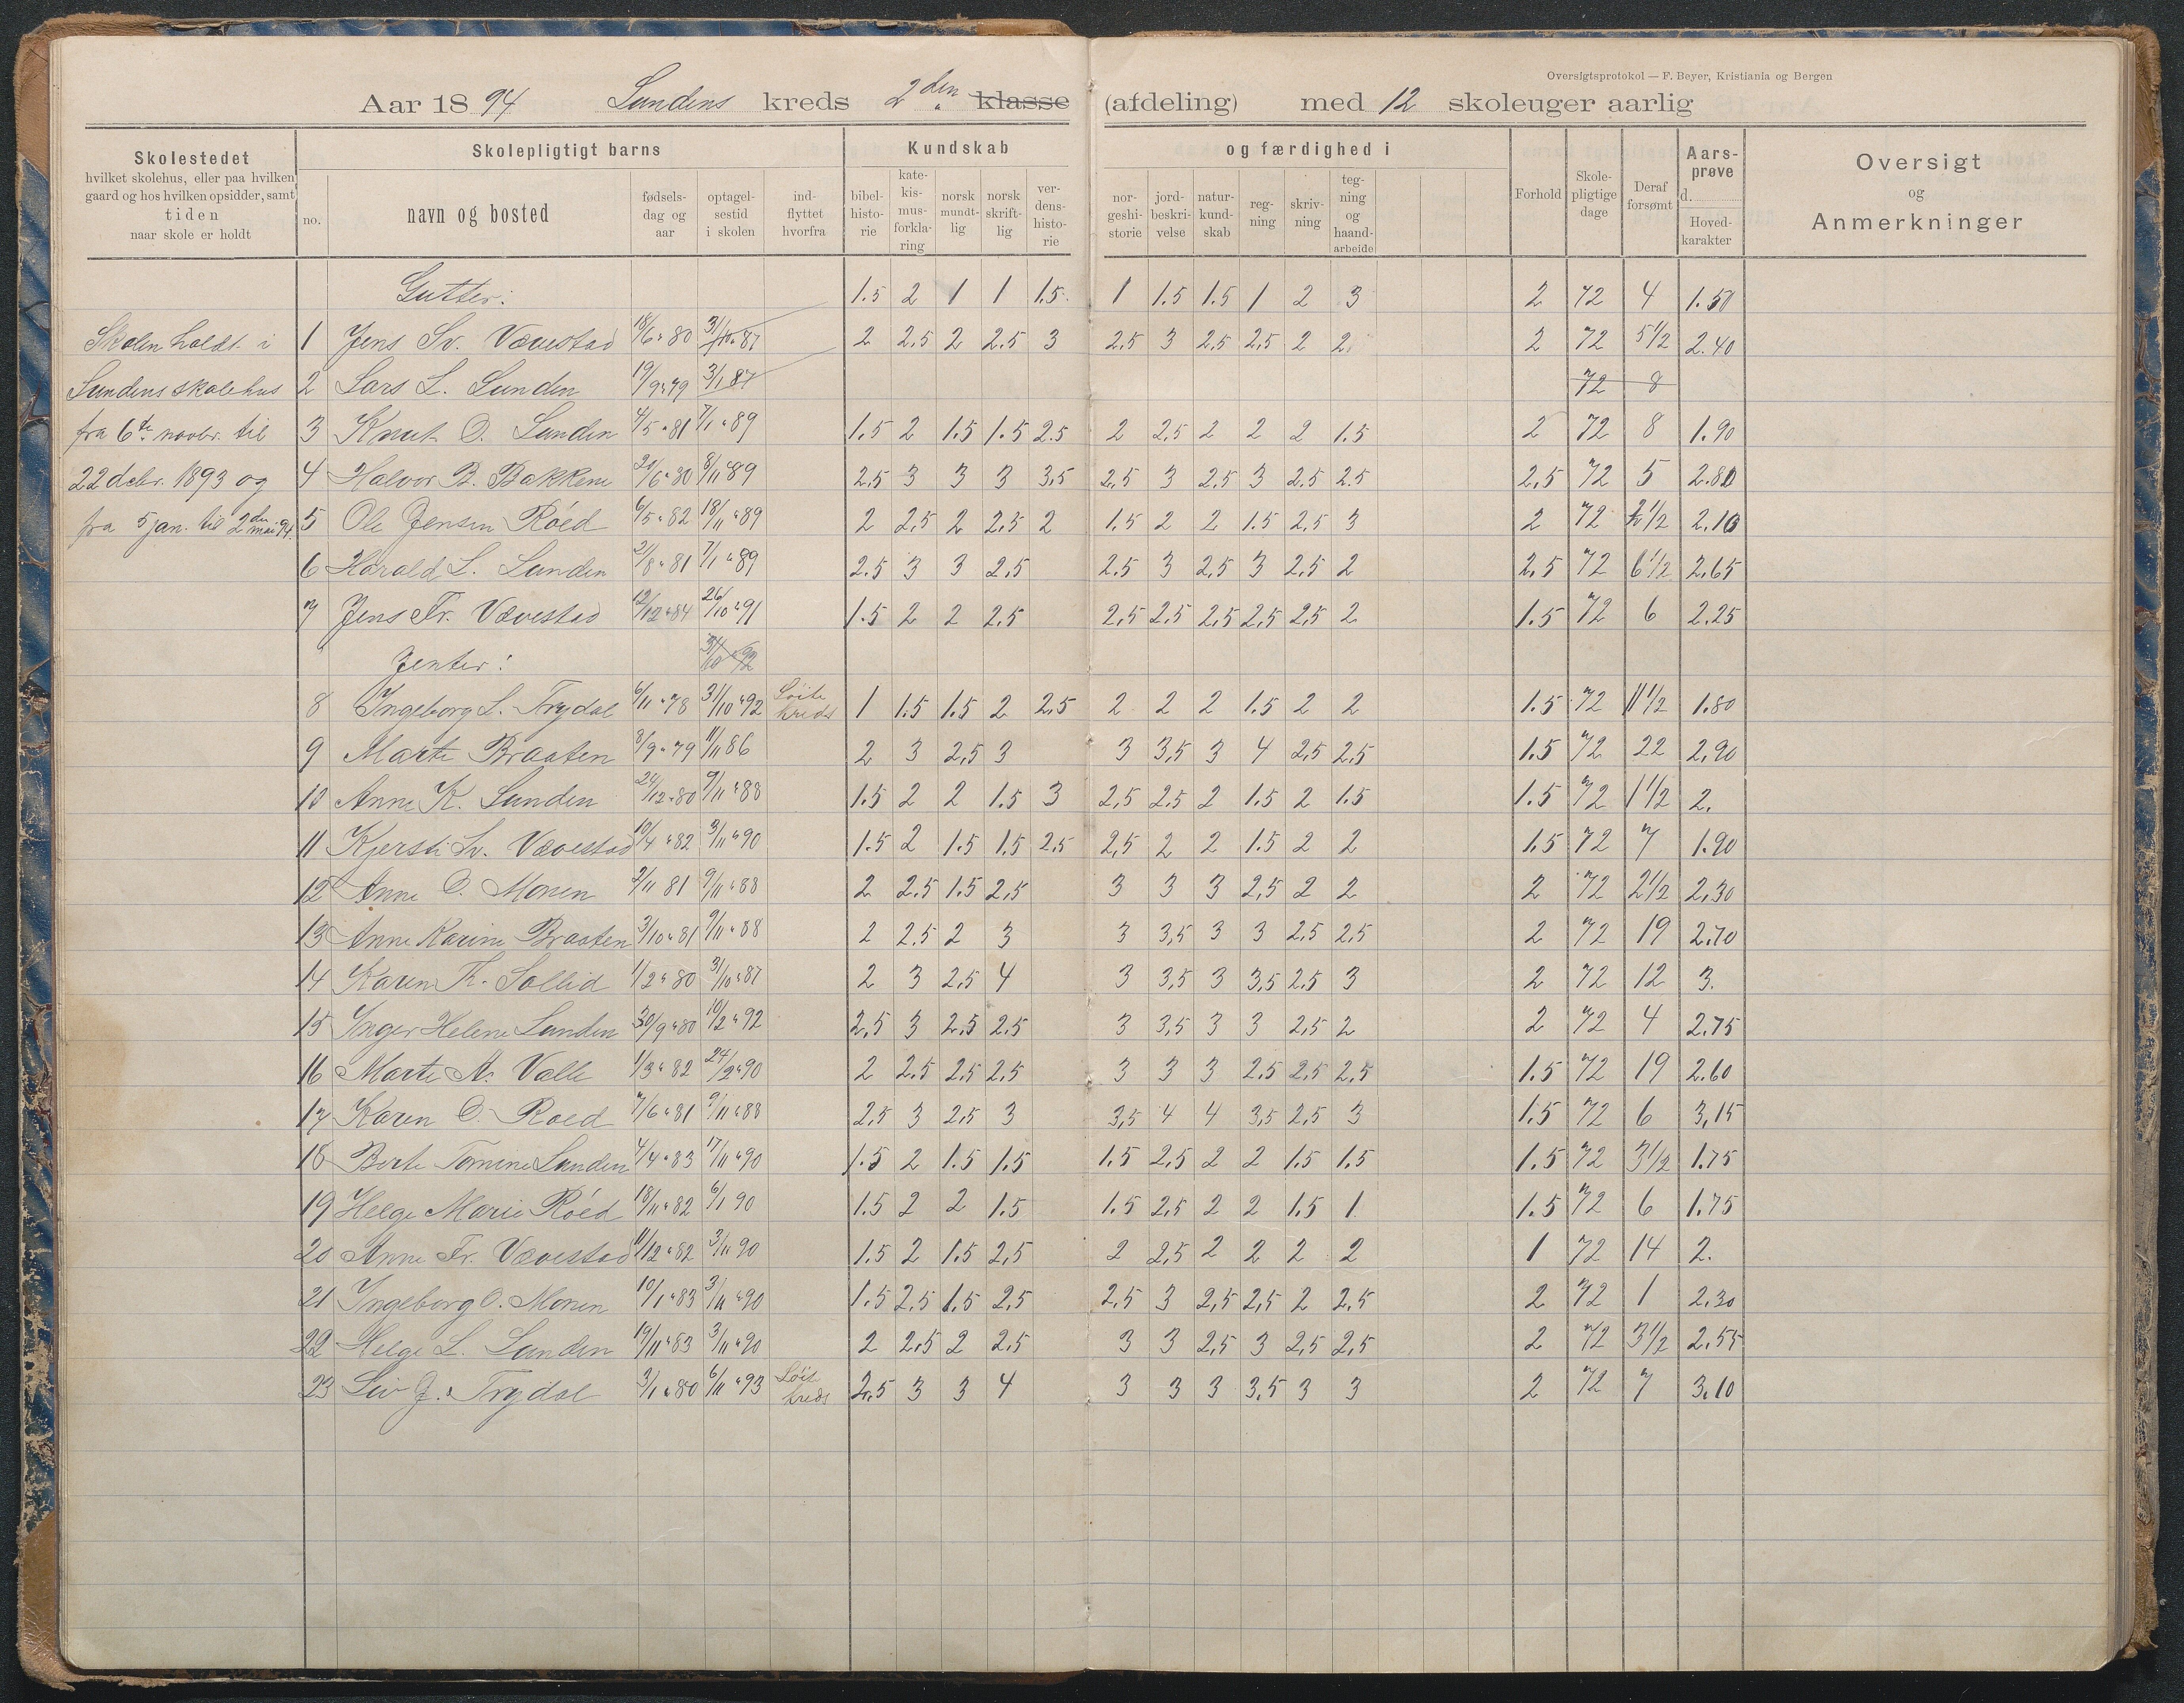 Oversigtsprotokol — F. Beyer, Kristiania og Bergen
Aar 1894 Sundens kreds 2den klasse (afdeling) med 12 skoleuger aarlig
Skolestedet
hvilket skolehus, eller paa hvilken
gaard og hos hvilken opsidder, samt
tiden
naar skole er holdt
Skolepligtigt barns
no. navn og bosted
fødsels-
dag og
aar
optagel-
sestid
i skolen
ind-
flyttet
hvorfra
Kundskab og færdighed i
bibel-
histo-
rie
kate-
kis-
mus-
forkla-
ring
norsk
mundt-
lig
norsk
skrift-
lig
ver-
dens-
histo-
rie
nor-
geshi-
storie
jord-
beskri-
velse
natur-
kund-
skab
reg-
ning
skriv-
ning
teg-
ning
og
haand-
arbeide
Forhold
Skole-
pligtige
dage
Deraf
forsømt
Aars-
prøve
d.
Hoved-
karakter
Oversigt
og
Anmerkninger
Gutter: 1.5 2 1 1 1.5 1 1.5 1.5 1 2 3 2 72 4 1.50
Skolen holdt i 1 Jens Sv. Vævestad 18/6 80 3/10 87 2 2.5 2 2.5 3 2.5 3 2.5 2.5 2 2 2 72 5 1/2 2.40
Sundens skolehus 2 Lars L. Sunden 19/9 79 3/1 87 72 8
fra 6te novbr. til 3 Knut O. Sunden 4/5 81 7/1 89 1.5 2 1.5 1.5 2.5 2 2.5 2 2 2 1.5 2 72 8 1.90
22 debr. 1893 og 4 Halvor B. Bakkene 20/6 80 8/11 89 2.5 3 3 3 3,5 2.5 3 2.5 3 2.5 2.5 2,5 72 5 2.80
fra 5 jan. til 2den mai 94. 5 Ole Jensen Röed 6/5 82 18/11 89 2 2,5 2 2,5 2 1.5 2 2 1.5 2,5 3 2 72 2 1/2 2.10
6 Harald L. Sunden 21/8 81 7/1 89 2.5 3 3 2,5 2.5 3 2,5 3 2,5 2 2,5 72 6 1/2 2.65
7 Jens Fr. Vævestad 12/12 84 26/10 91 1.5 2 2 2,5 2,5 2,5 2,5 2,5 2,5 2 1.5 72 6 2.25
Jenter: 31/10 92
8 Ingeborg L. Trydal 6/11 78 31/10 92 Löite kreds 1 1.5 1.5 2 2,5 2 2 2 1.5 2 2 1.5 72 11 1/2 1.80
9 Marte Braaten 8/9 79 11/11 86 2 3 2,5 3 3 3,5 3 4 2,5 2,5 1.5 72 22 2,90
10 Anne K. Sunden 24/12 80 9/11 88 1.5 2 2 1.5 3 2,5 2,5 2 1.5 2 1.5 1.5 72 1 1/2 2.
11 Kjersti Sv. Vævestad 10/4 82 3/11 90 1.5 2 1.5 1.5 2,5 2,5 2 2 1.5 2 2 1.5 72 7 1.90
12 Anne O. Monen 2/11 81 9/11 88 2 2.5 1.5 2,5 3 3 3 2,5 2 2 2 72 2 1/2 2,30
13 Anne Karine Braaten 3/10 81 9/11 88 2 2.5 2 3 3 3,5 3 3 2,5 2,5 2 72 19 2.70
14 Karen K. Sollid 1/2 80 31/10 87 2 3 2,5 4 3 3,5 3 3,5 2,5 3 2 72 12 3.
15 Inger Helene Sunden 30/9 80 10/2 92 2,5 3 2,5 2,5 3 3,5 3 3 2,5 2 2 72 4 2.75
16 Marte A. Valle 1/3 82 24/2 90 2 2.5 2,5 2,5 3 3 3 2,5 2,5 2,5 1.5 72 19 2.60
17 Karen O. Roed 7/6 81 9/11 88 2,5 3 2,5 3 3,5 4 4 3,5 2,5 3 1.5 72 6 3,15
18 Berte Tomine Sunden 4/4 83 17/11 90 1.5 2 1.5 1.5 1.5 2,5 2 2 1.5 1.5 1.5 72 3 1/2 1.75
19 Helge Marie Röed 18/11 82 6/1 90 1.5 2 2 1.5 1.5 2,5 2 2 1.5 1 1.5 72 6 1.75
20 Anne Fr. Vævestad 11/12 82 3/11 90 1.5 2 1.5 2,5 2 2,5 2 2 2 2 1 72 14 2.
21 Ingeborg O. Monen 10/1 83 3/11 90 1.5 2.5 1.5 2,5 2.5 3 2,5 2,5 2 2,5 2 72 1 2.30
22 Helge L. Sunden 19/11 83 3/11 90 2 2,5 2 2,5 3 3 2,5 3 2,5 2,5 2 72 3 1/2 2.55
23 Liv J. Trydal 3/1 80 6/11 93 Löit kreds 2,5 3 3 4 3 3 3 3,5 3 3 2 72 7 3.10